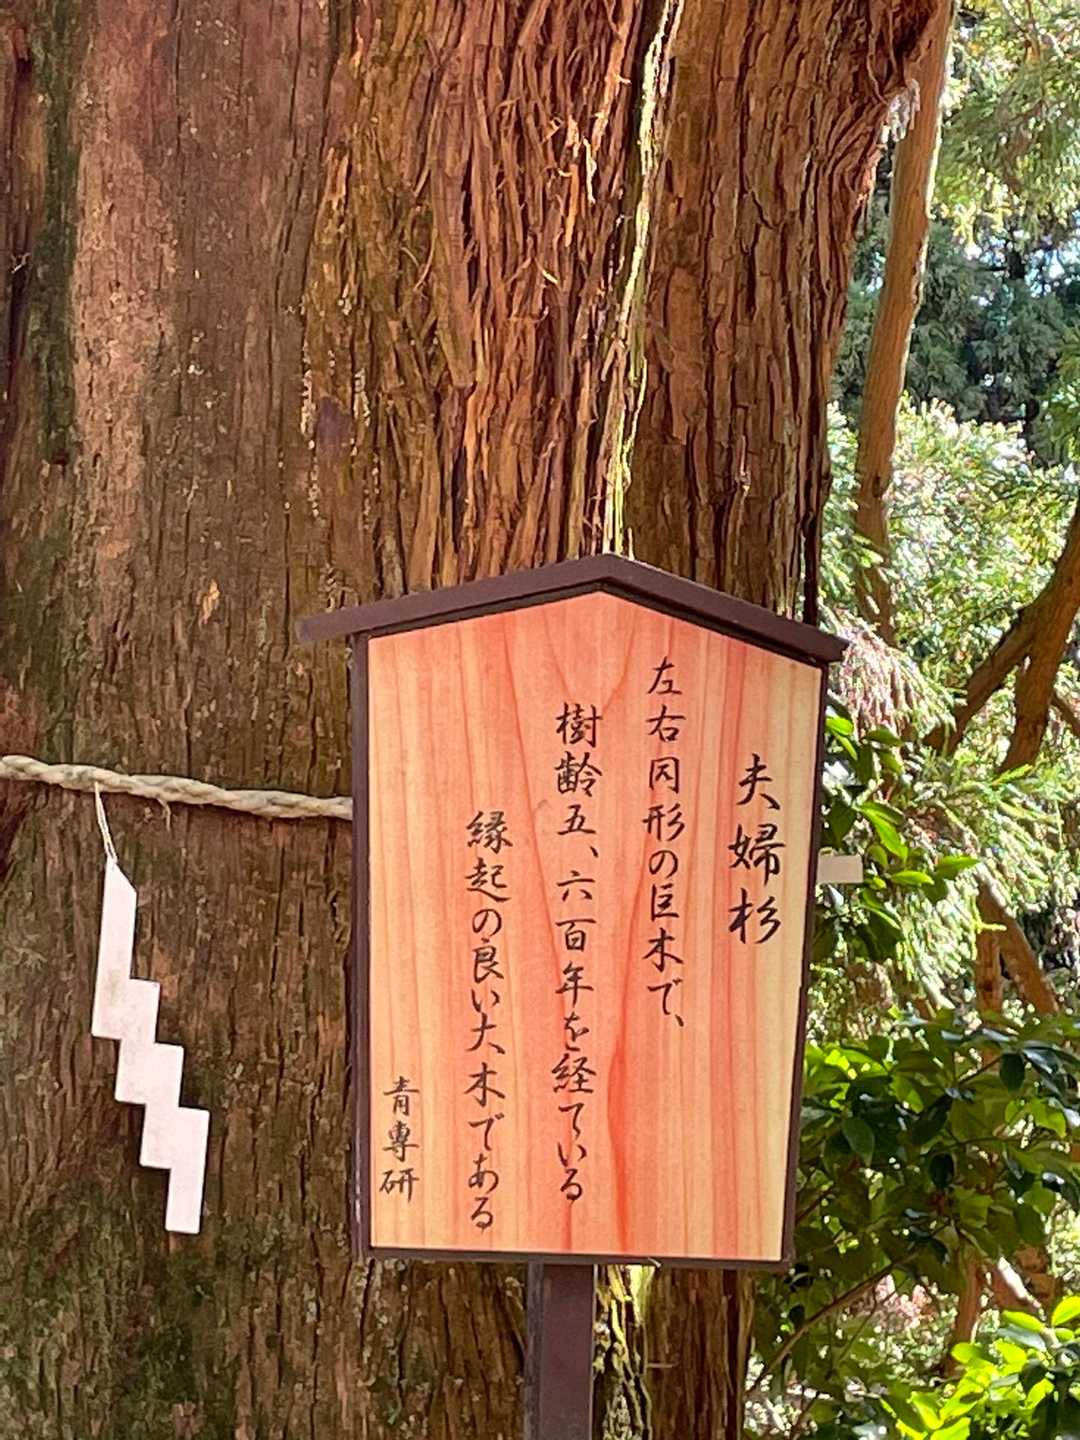 夫婦杉
左右同形の巨木で、
樹齢五、六百年を経ている
縁起の良い大木である
青專研